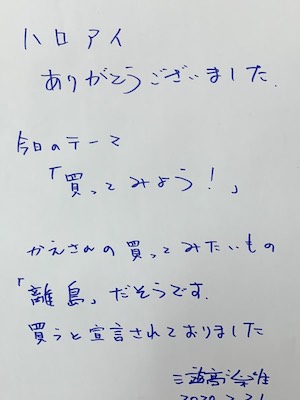 ハロアイ
ありがとうございました.
今日のテーマ
「買ってみよう!」
かえさんの買ってみたいもの
「離島」だそうです.
買うと宣言されておりました